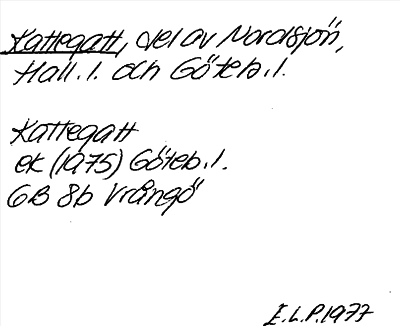 Kattegatt, del av Nordsjön,
Hall. l. och Göteb. l.
Kattegatt
ek (1975) Göteb. l.
6B 8b Vrångö
E.L.P. 1977